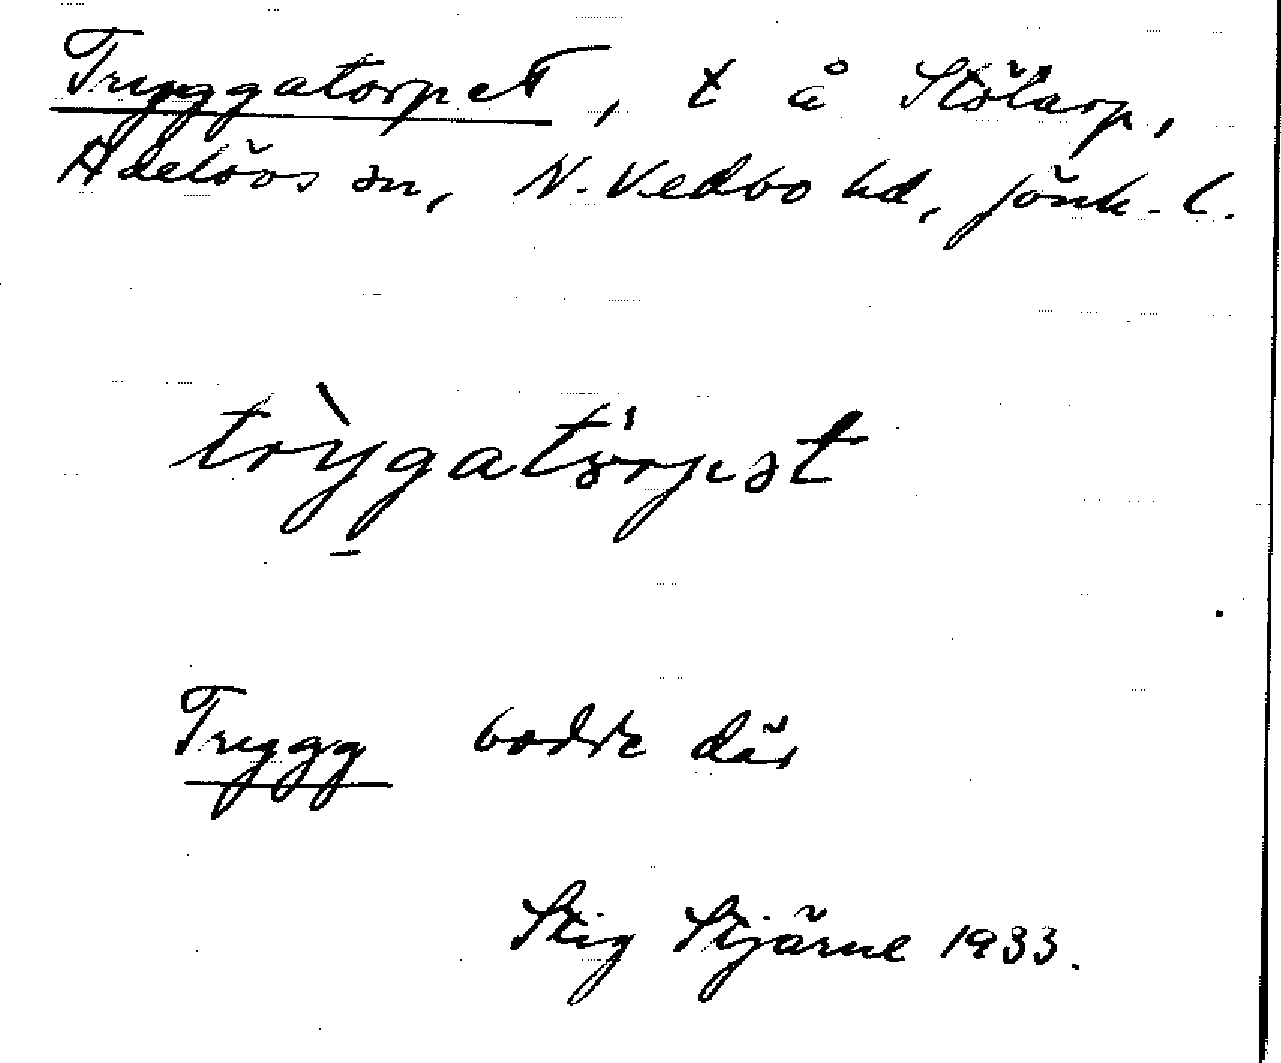 Tryggatorpet, t å Stölarp,
Adelövs sn, N. Vedbo hd, Jönk. l.
trỳgatɷ̈'rpət
Trygg bodde där
Stig Stjärne 1933.